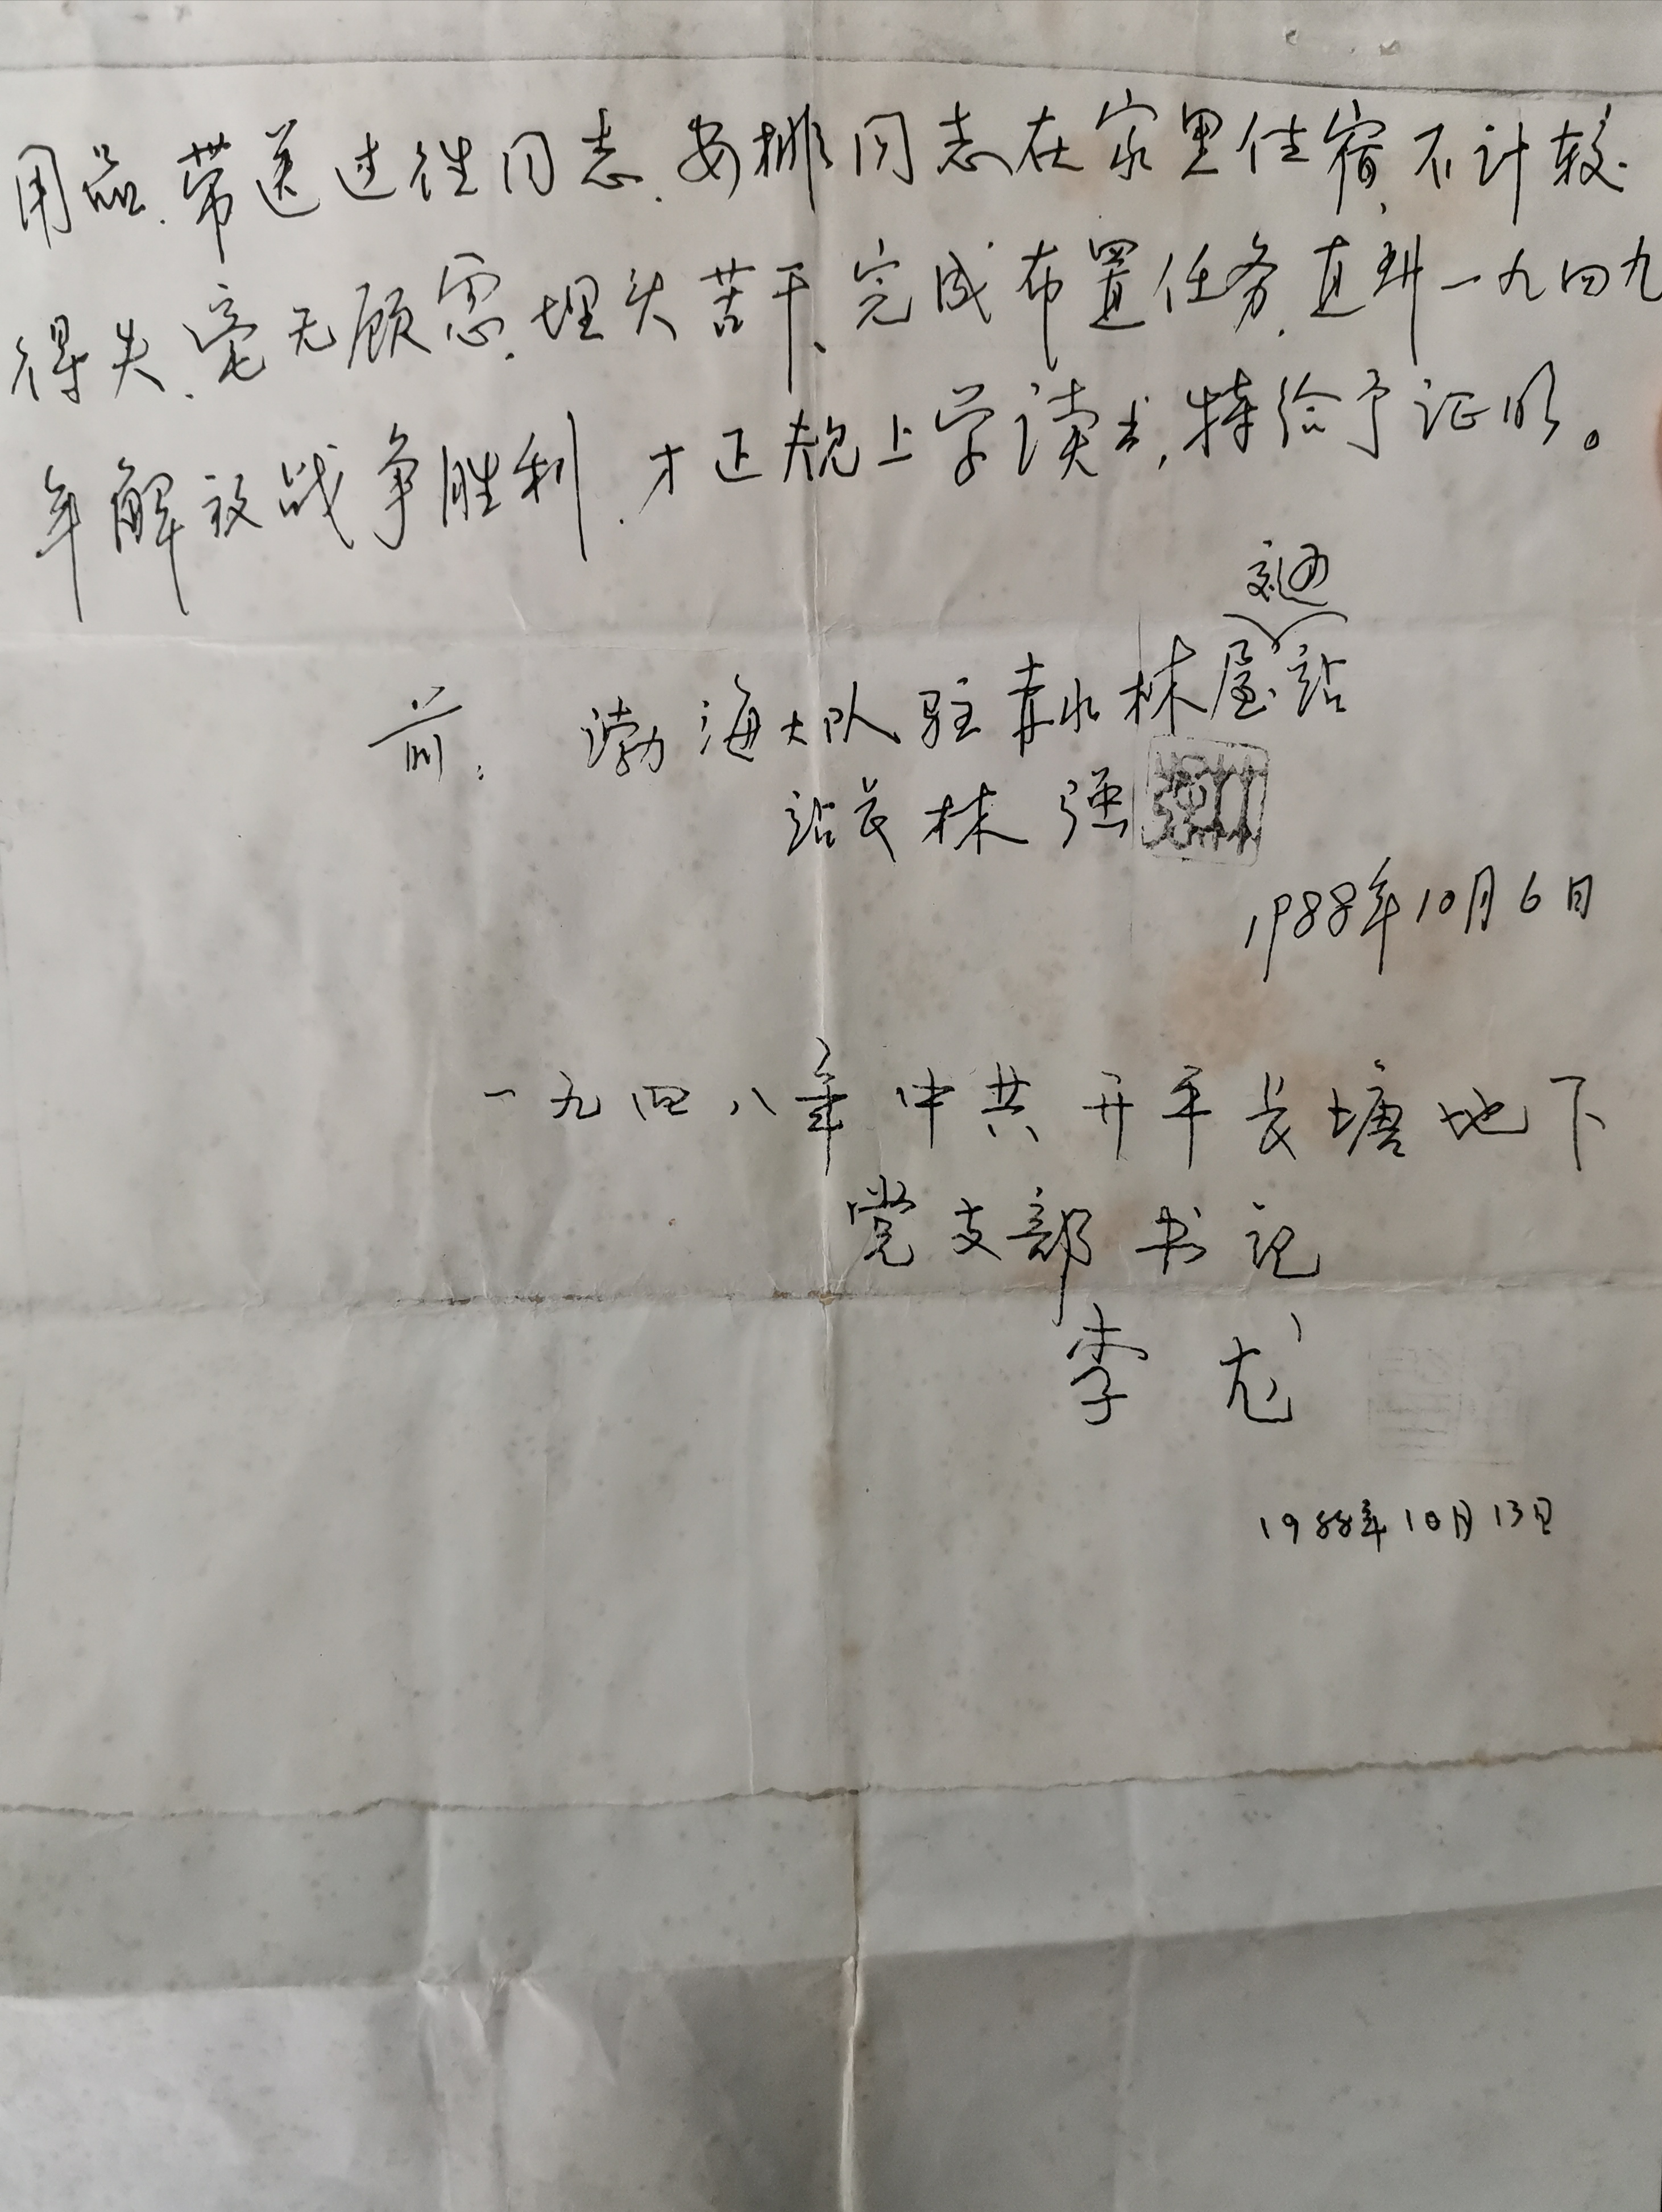 用品.带送过往同志.安排同志在家里住宿,不计较
得失.毫无顾虑.埋头苦干、完成布置任务.直到一九四九
年解放战争胜利.才正规上学读书,特给予证明。
交通
前: 渤海大队驻赤水林屋站
站长林强
1988年10月6日
一九四八年中共开平长塘地下
党支部书记
李龙
1988年10月13日